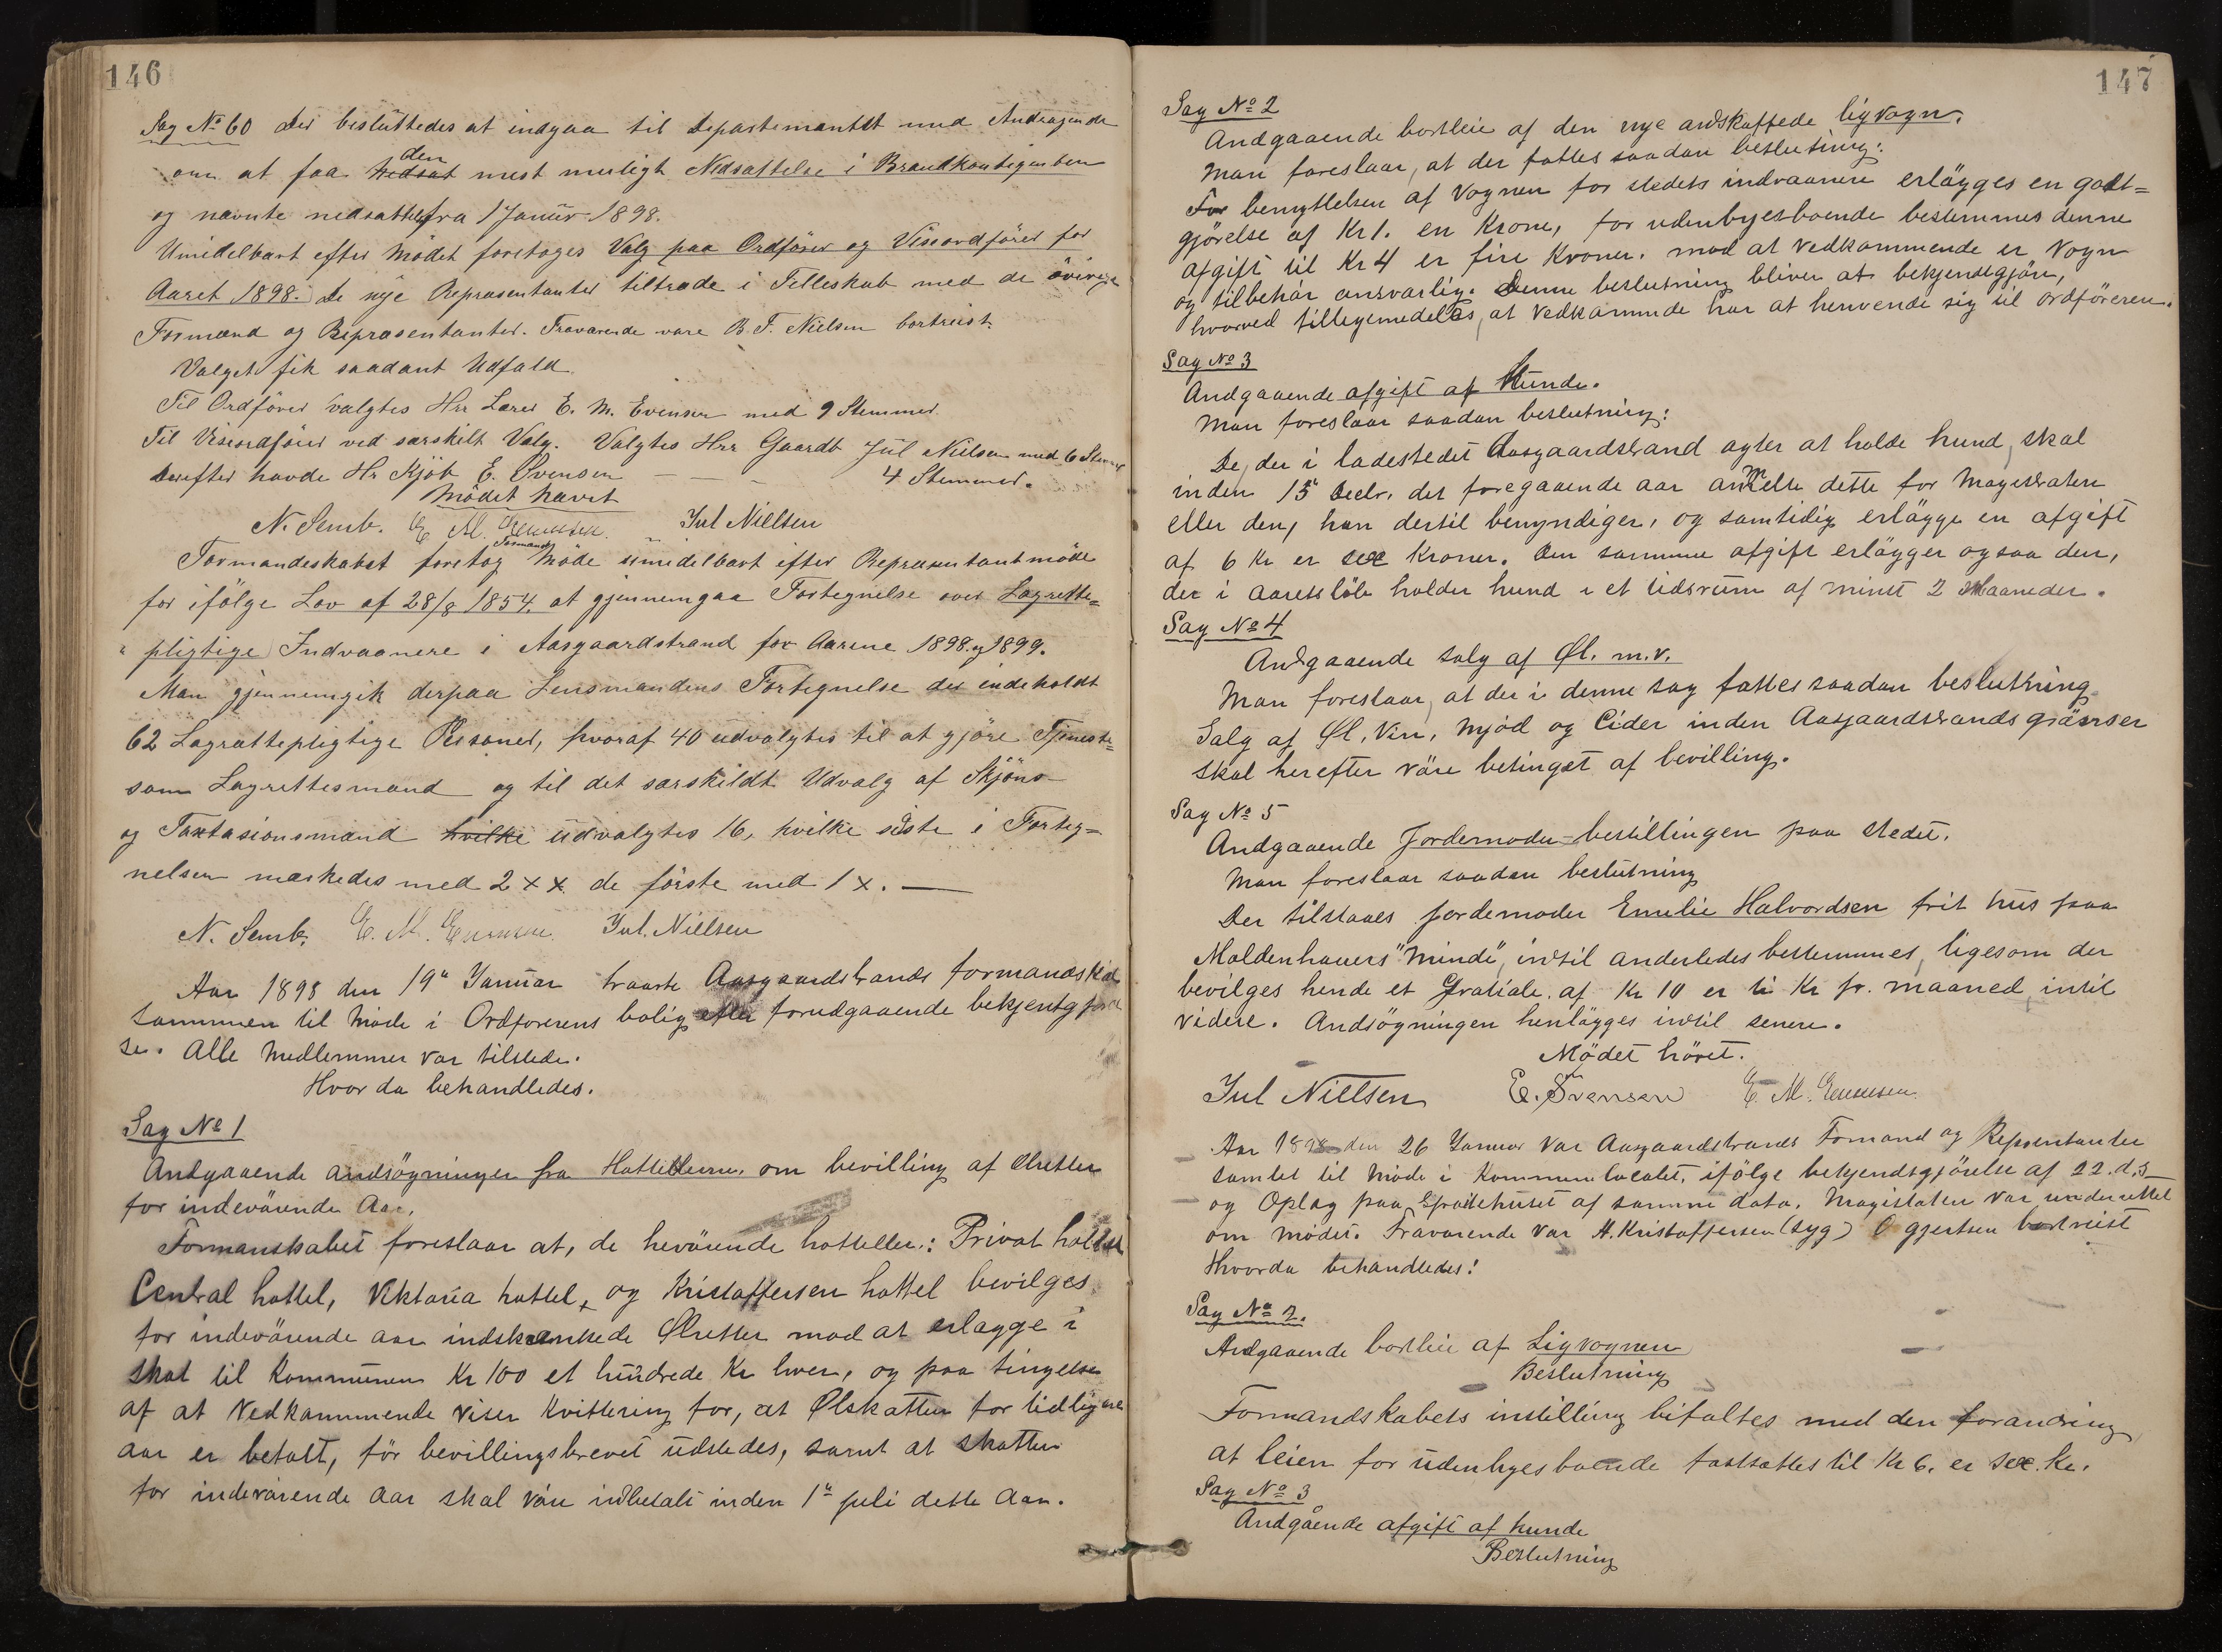 146
Sag No 60 Der besluttedes at indgaa til Departementet med Andragende
om at faa den mest muligt Nedsættelse i Brandkontigenten
og nævnte nedsættelse fra 1 Januar 1898.
Umidelbart efter Mödet foretoges Valg paa Ordförer og Viseordförer for
Aaret 1898. De nye Repræsentanter tiltrade i Felleskab med de övrige
Formænd og Repræsentanter. Fraværende vare B. F. Nielsen bortreist.
Valget fik saadant Udfald.
Til Ordförer valgtes Hrr Lærer E. M. Evensen med 9 Stemmer.
Til Viseordförer ved særskilt Valg. Valgtes Hrr Gaardb Jul Nielsen med 6 Stemmer
derefter havde Hr Kjöb E. Svensen — — — 4 Stemmer.
Mödet hævet
N. Semb. E. M. Evensen. Jul Nielsen
Formandeskabet foretog Möde umidelbart efter Repræsentantmöde
for ifölge Lov af 28/8 1854. at gjennemgaa Fortegnelse over Lagrette=
pligtige Indvaanere i Aasgaardstrand for Aarene 1898 og 1899.
Man gjennemgik derpaa Lensmandens Fortegnelse der indeholdt
62 Lagrettepligtige Personer, hvoraf 40 udvalgtes til at gjöre Tjeneste=
som Lagrettesmænd og til det særskildt Udvalg af Skjöns
og Taxtasionsmænd hvilke udvalgtes 16, hvilke sidste i Forteg=
nelsen mærkedes med 2 x x de förste med 1 x. —
N. Semb. E. M. Evensen. Jul. Nielsen
Aar 1898 den 19de Januar traatte Aasgaardstrands formandskab
sammen til Möde i Ordförerens bolig efter forudgaaende bekjentgjörel
se. Alle Medlemmer var tilstede.
Hvor da behandledes.
Sag No 1
Andgaaende andsögninger fra Hottellerne om bevilling af Ølretter
for indeværende Aar.
Formanskabet foreslaar at, de heværende hotteller: Privat hottel
Central hottel, Viktoria hottel, og Kristoffersen hottel bevilges
for indeværende aar indskrænkede Ølretter mod at erlægge i
skat til Kommunen Kr 100 et hundrede Kr hver, og paa tingelse
af at Vedkammende viser Kvittering for, at Ølskatten for tidligere
aar er betalt, för bevillingsbrevet udstedes, samt at skatten
for indeværende aar skal være indbetalt inden 1ste juli dette aar.
147
Sag No 2
Andgaaende bortleie af den nye andskaffede ligvogn.
Man foreslaar, at der fattes saadan beslutning:
For benyttelsen af Vognen for stedets indvaanere erlægges en godt=
gjörelse af Kr 1. en Krone, for udenbyesboende bestemmes denne
afgift til Kr 4 er fire Kroner. mod at vedkammende er Vogn
og tilbehör ansvarlig. Denne beslutning bliver at bekjendtgjöre,
hvorved tillige meddeles, at vedkammende har at henvende sig til ordföreren.
Sag No 3
Andgaaende afgift af Hunde.
Man foreslaar saadan beslutning:
De, der i ladestedet Aasgaardstrand agter at holde hund, skal
inden 15de Decbr. det foregaaende aar anmelde dette for Magistraten
eller den, han dertil bemyndiger, og samtidig erlægge en afgift
af 6 Kr er sex Kroner. Den samme afgift erlægger ogsaa den,
der i aarets löb holder hund i et tidsrum af minst 2 Maaneder.
Sag No 4
Andgaaende salg af Øl. m.v.
Man foreslaar, at der i denne sag fattes saadan beslutning
Salg af Øl, Vin, Mjöd og Cider inden Aasgaardstrands grænser
skal herefter være betinget af bevilling.
Sag No 5
Andgaaende Jordemoder=bestillingen paa stedet.
Man foreslaar saadan beslutning
Der tilstaaes jordemoder Emelie Halvordsen frit hus paa
Moldenhauers "Minde", indtil anderledes bestemmes, ligesom der
bevilges hende et Gratiale. af Kr 10 er ti Kr pr. maaned, intil
videre. Andsögningen henlægges indtil senere.
Mödet hævet.
Jul Nielsen E. Svensen E. M. Evensen.
Aar 1898 den 26 Januar var Aasgaardstrands Formænd og Repræsentanter
samlet til Möde i Kommunelocalet, ifölge bekjendtgjörelse af 22. d.s
og Oplag paa Spröitehuset af samme dato. Magistraten var underrettet
om mödet. Fraværende var H. Kristoffersen (syg) O gjertsen bortreist
Hvorda behandledes!
Sag No 2.
Andgaaende bortleie af Ligvognen
Beslutning
Formandskabets instilling bifaltes med den forandring,
at leien for udenbyesboende fastsættes til Kr 6. er sex. Kr.
Sag No 3
Andgående afgift af hunde
Beslutning